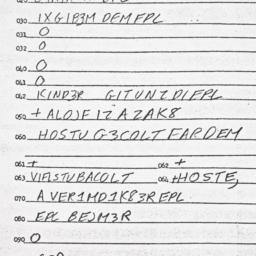 030 IXGIB3M DEMFPL
031 O
032 O
040 O
041 O
042 KIND3R GITUNZDIFPL
050 + ALOJF IZ A ZAK8
060 HOSTU G3COLT FARDEM
061 + 062 +
063 VIFISTUBACOLT 064 +HOSTE,
070 A VER1MD1K83REPL
080 EPL BEJM3R
090 O